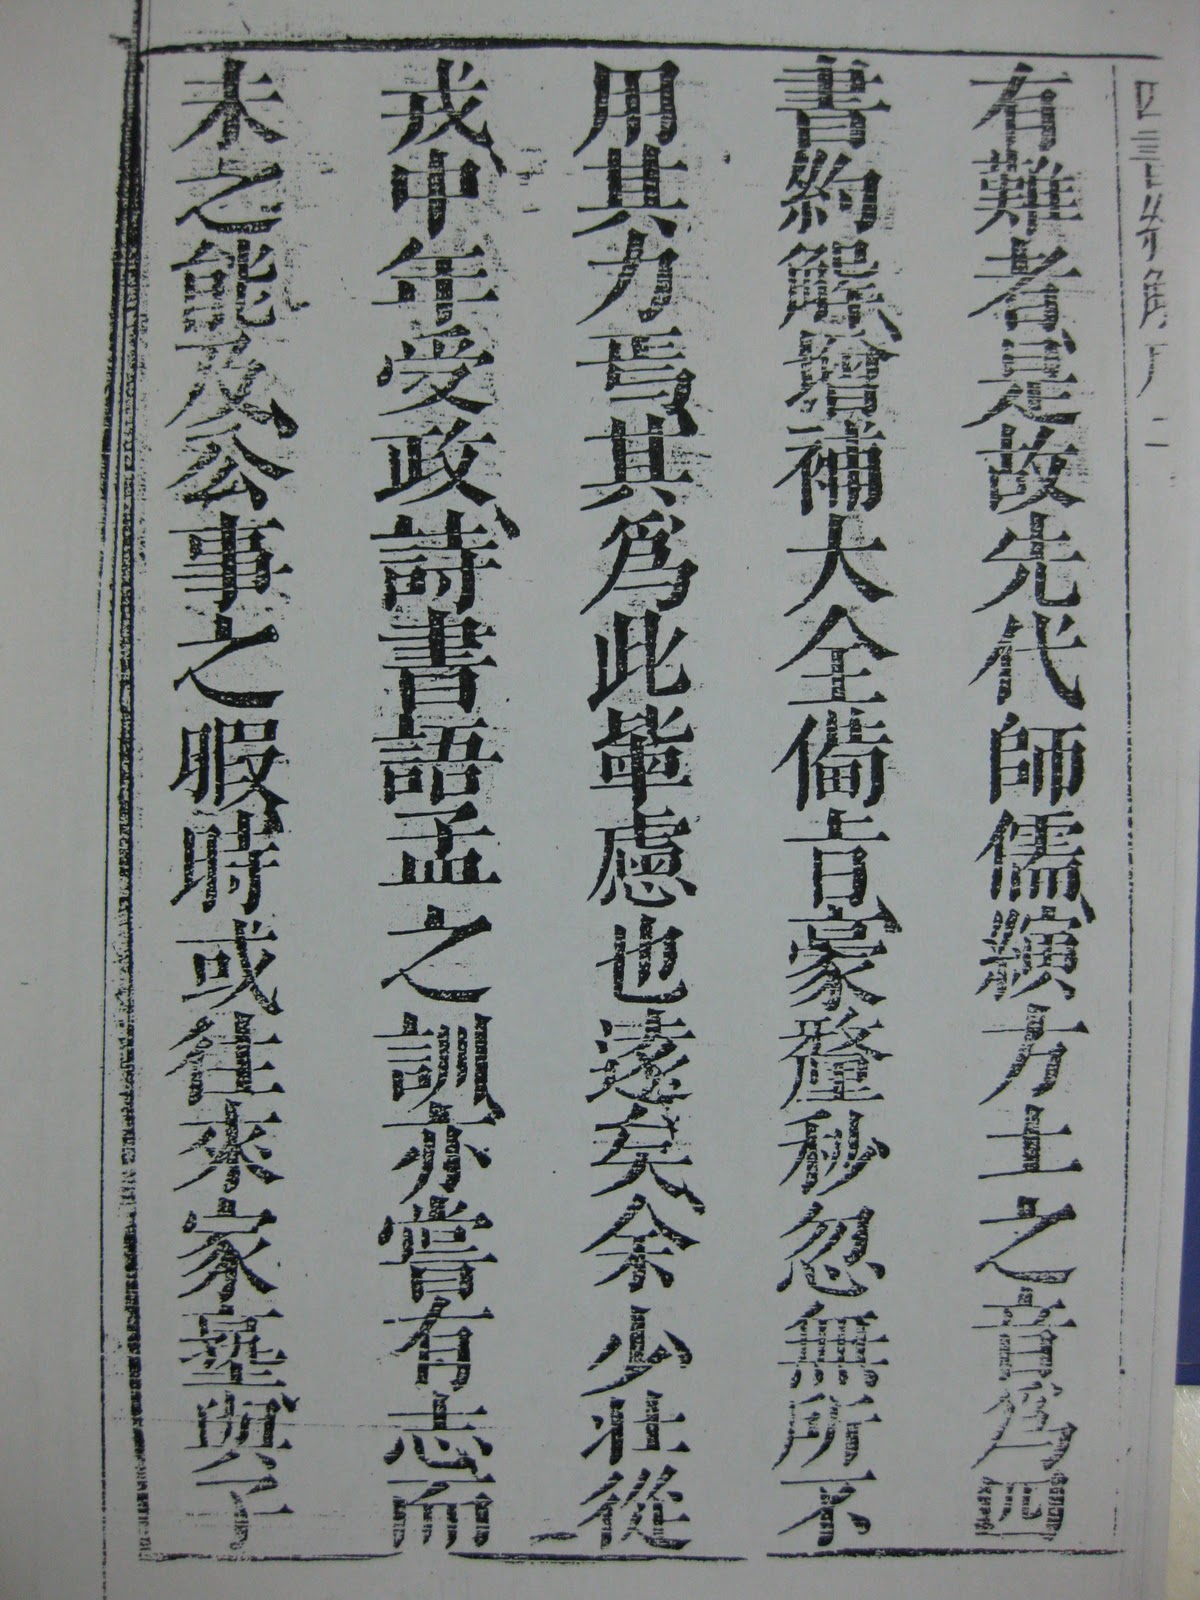 四書約解序 二
有難者是故先代師儒演方土之音爲四
書約解增補大全備旨豪釐秒忽無所不
用其力焉其爲此畢慮也遠矣余少壯從
戎中年受政詩書語孟之訓亦嘗有志而
未之能及公事之暇時或往來家塾與子